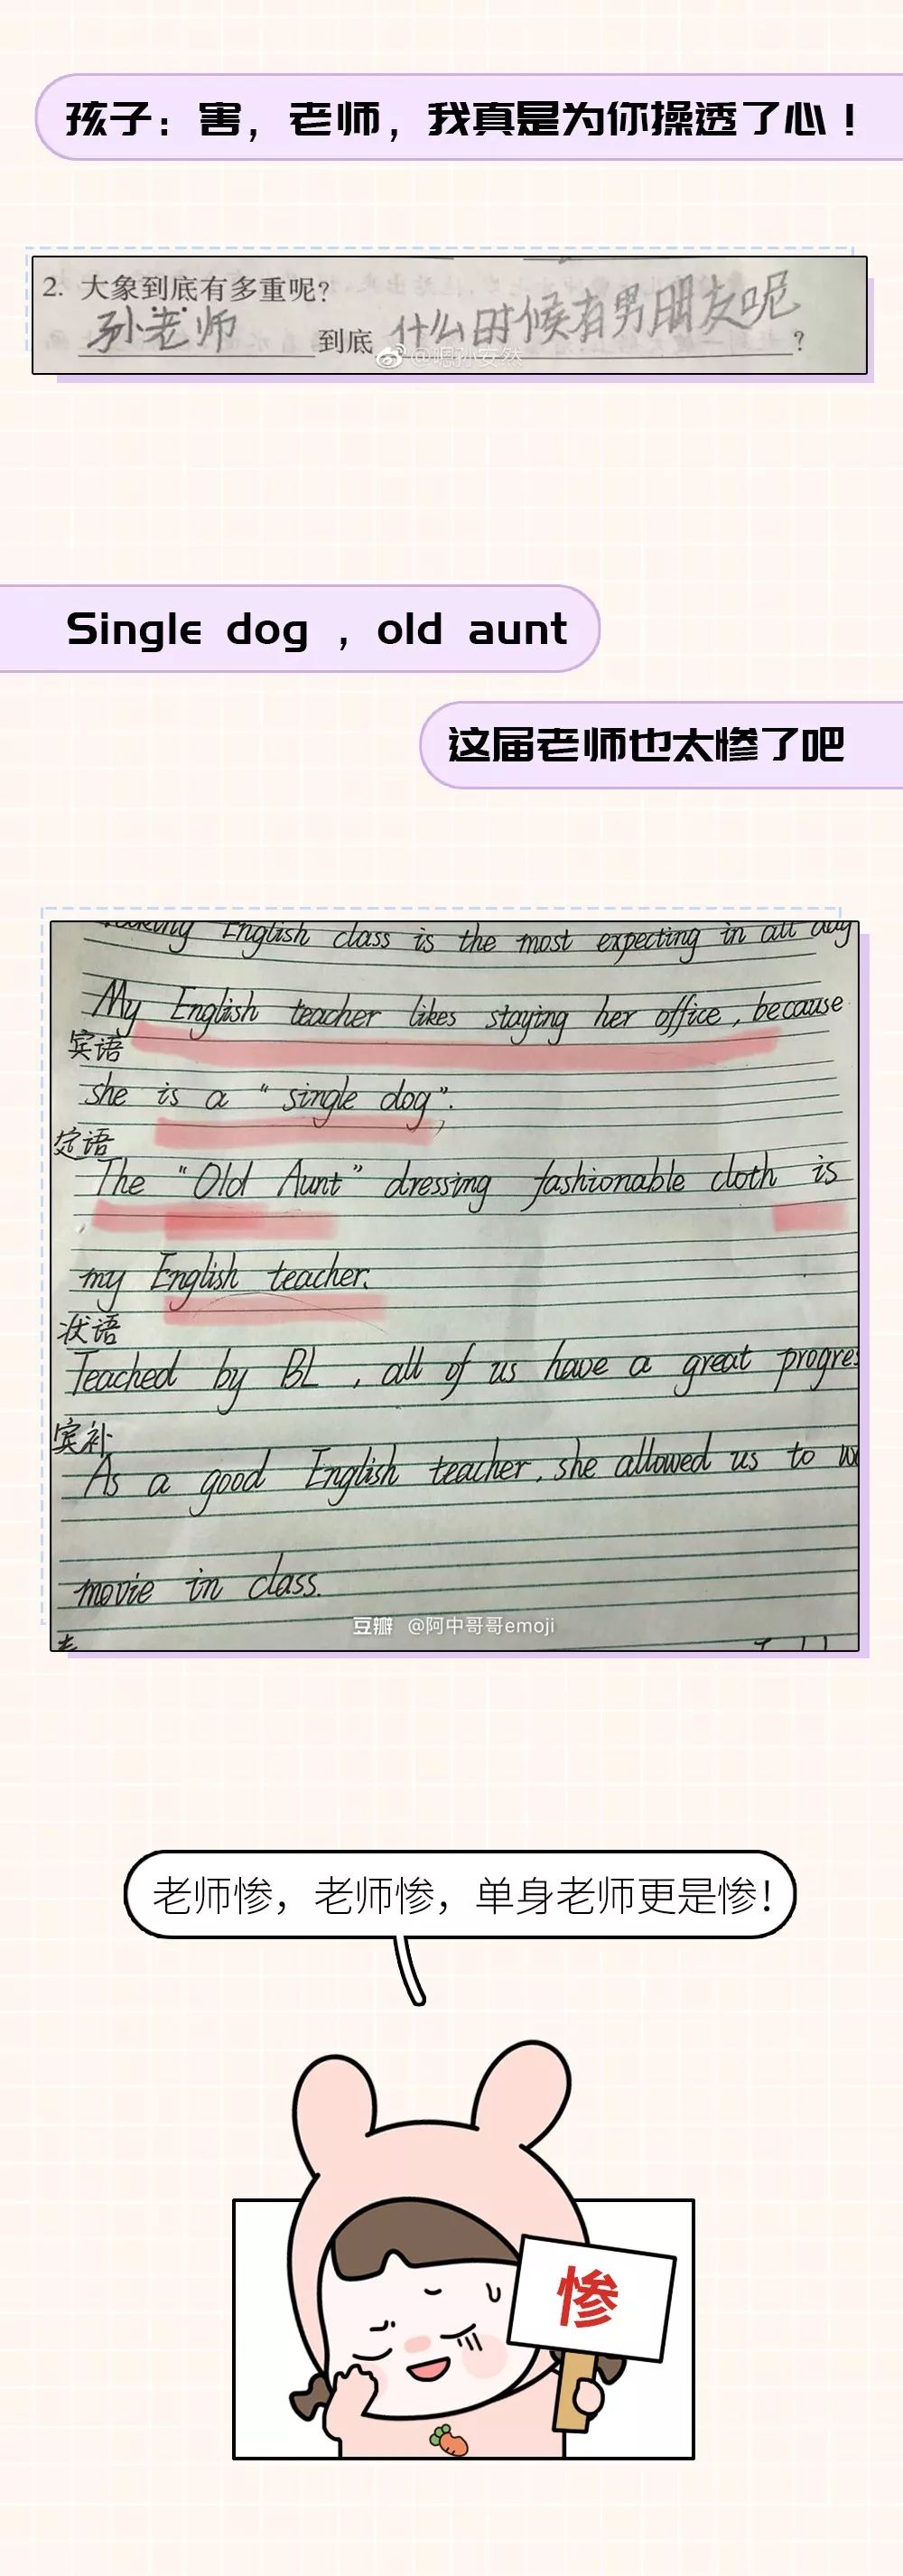 孩子：害，老师，我真是为你操透了心！
2. 大象到底有多重呢？
孙老师到底什么时候有男朋友呢？
@嗯孙安然
Single dog , old aunt
这届老师也太惨了吧
English class is the most expecting in all day
My English teacher likes staying her office, because
宾语
she is a "single dog".
定语
The "Old Aunt" dressing fashionable cloth is
my English teacher.
状语
Teached by BL , all of us have a great progres
宾补
As a good English teacher, she allowed us to
movie in class.
豆瓣 @阿中哥哥emoji
老师惨，老师惨，单身老师更是惨！
惨